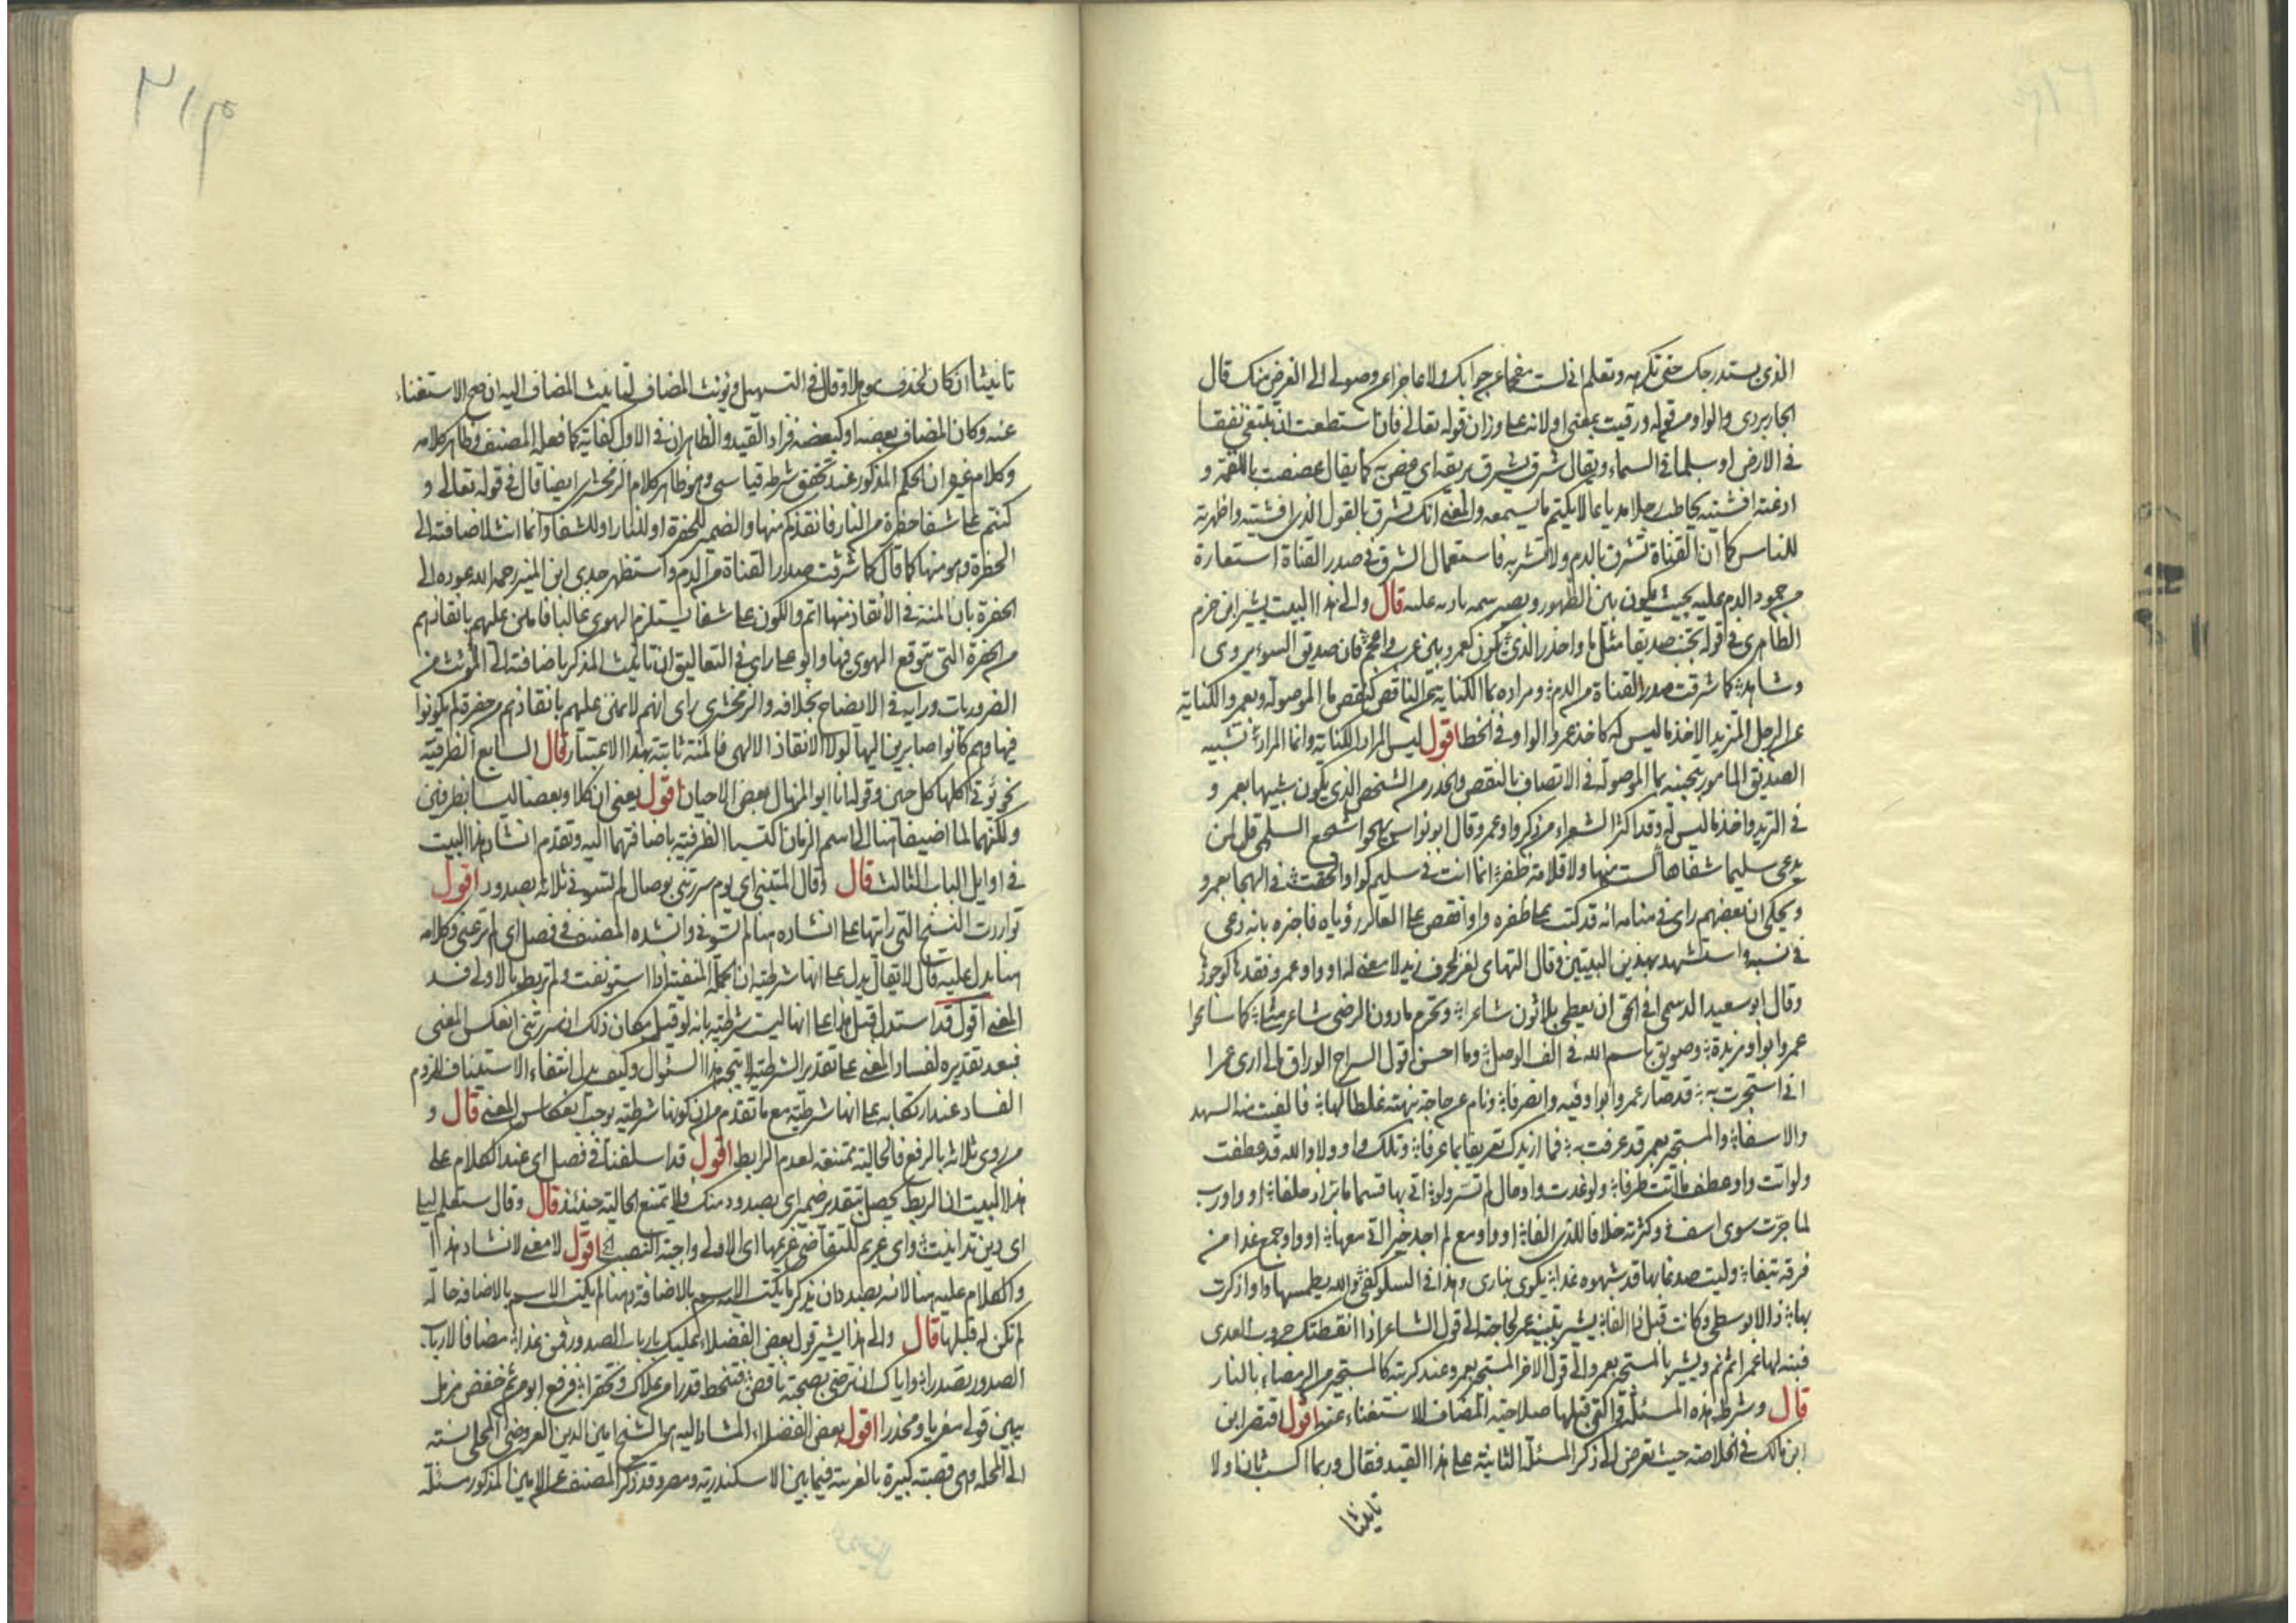 الذى يستدرجك حتى تكرهه وتعلم انى لست مفحما عن جوابك ولا عاجزا عن وصولى الى الغرض منك قال
الجاربردى والواو من قوله ورقيت بمعنى او لانه على وزان قوله تعالى فان استطعت ان تبتغى نفقا
فى الارض او سلما فى السماء ويقال شرق يشرق بريقه اى غص به كما يقال غصصت باللقمة و
اذعته افشيته يخاطب رجلا مذياعا لا يكتم ما يسمعه والمعنى انك تشرق بالقول الذى افشيته واظهرته
للناس كما ان القناة تشرق بالدم ولا تشربه فاستعمال الشرق فى صدر القناة استعارة
من جمود الدم عليه بحيث يكون بين الظهور ويصير سمة بادية عليه قال والى هذا البيت يشير ابن حزم
الظاهرى فى قوله تجنب صديقا مثل ما واحذر الذى يكون كعمرو بين عرب واعجم فان صديق السوء يروى
وشاهده كما شرقت صدر القناة من الدم ومراده بما الكناية عن الناقص كنقص ما الموصولة وبعمرو الكناية
عن الرجل المتزيد الاخذ ما ليس له كاخذ عمرو الواو فى الخط اقول ليس المراد الكناية وانما المراد تشبيه
الصديق المامور بتجنبه بما الموصولة فى الاتصاف بالنقص والحذر من الشخص الذى يكون شبيها بعمرو
فى التزيد واخذ ما ليس له وقد اكثر الشعراء من ذكر واو عمرو وقال ابو نواس يهجو اشجع السلمى قل لمن
يدعى سليما شفاها لست منها ولا قلامة ظفر انما انت فى سليم كواو الحقت فى الهجا بعمرو
ويحكى ان بعضهم راى فى منامه انه قد كتب على ظفره واوا فقص على العابر رؤياه فاخبره بانه دعى
فى نسبه واستشهد بهذين البيتين وقال التهامى لغز لحرف زيد لا معنى له او واو عمرو فقدها كوجودها
وقال ابو سعيد الرستمى افى الحق ان يعطى ثلاثون شاعرا ويحرم ما دون الرضى شاعر مثلى كما سامحوا
عمروا بواو مزيدة وضويق باسم الله فى الف الوصل وما احسن قول السراج الوراق مالى ارى عمرا
انى استجرت به قد صار عمروا بواو فيه وانصرفا ونام عن حاجة نبهته غلطا لها فالفيت منه السهد
والاسفا والمستجير بعمرو قد عرفت به فما ازيدك تعريفا بما عرفا وتلك واو ولا والله قد عطفت
ولو اتت واو عطف ما اتت طرفا ولو غدت واو حال لم تسر ولو اتى بها قسما ما بر اذ حلفا او واو رب
لما جرت سوى اسف وكثرته خلافا للذى الفا او واو مع لم اجد خيرا اتى معها او واو جمع غدا من
فرقة تيفا وليت صدغا بها قد شبهوه غدا يكوى بنارى وهذا فى السلو كفى والله يطمسها واوا ذكرت
بها ذالا بوسطى وكانت قبل ذا الفا يشير بتنبيه عمر لحاجته الى قول الشاعر اذا ايقظتك حروب العدى
فنبه لها عمرا ثم نم ويشير بالمستجير بعمرو الى قول الاخر المستجير بعمرو عند كربته كالمستجير من الرمضاء بالنار
قال وشرط هذه المسئلة والتى قبلها صلاحية المضاف للاستغناء عنه اقول اقتصر ابن
ابن مالك فى الخلاصة حيث تعرض الى ذكر المسئلة الثانية على هذا القيد فقال وربما اكسب ثان اولا
تانيثا
تانيثا ان كان لحذف موهلا وقال فى التسهيل ويؤنث المضاف لتانيث المضاف اليه ان صح الاستغناء
عنه وكان المضاف بعضه او كبعضه فزاد القيد والظاهر ان فى الاول كفاية كما فعل المصنف وظاهر كلامه
وكلام غيره ان الحكم المذكور عند تحقق شرطه قياسى وهو ظاهر كلام الزمخشرى ايضا قال فى قوله تعالى و
كنتم على شفا حفرة من النار فانقذكم منها والضمير للحفرة او للنار او للشفا وانما انث لاضافته الى
الحفرة وهو منها كما قال كما شرقت صدر القناة من الدم واستظهر جدى ابن المنير رحمه الله عوده الى
الحفرة بان المنة فى الانقاذ منها اتم والكون على شفا يستلزم الهوى غالبا فامتن عليهم بانقاذهم
من الحفرة التى يتوقع الهوى فيها وابو على راى فى التعاليق ان تانيث المذكر باضافته الى المؤنث من
الضروريات ورايه فى الايضاح بخلافه والزمخشرى راى انهم لا يمتن عليهم بانقاذهم من حفرة لم يكونوا
فيها وهم كانوا صايرين اليها لولا الانقاذ الالهى فالمنة ثابتة بهذا الاعتبار قال السابع الظرفية
نحو تؤتى اكلها كل حين وقوله انا ابو المنهال بعض الاحيان اقول يعنى ان كلا وبعضا ليسا بظرفين
ولكنهما لما اضيفا هنا الى اسم الزمان اكتسبا الظرفية باضافتهما اليه وتقدم انشاد هذا البيت
فى اوايل الباب الثالث قال وقال المتنبى اى يوم سررتنى بوصال لم تسؤنى ثلاثة بصدود اقول
تواردت النسخ التى رايتها على انشاده هنا لم تسؤنى وانشده المصنف فى فصل اى لم ترعنى وكلامه
هنا يدل عليه قال لا يقال يدل على انها شرطية ان الجملة المنفية اذا استونفت ولم تربط بالاولى فسد
المعنى اقول قد استدل قبل هذا على انها ليست شرطية بانه لو قيل مكان ذلك ان سررتنى انعكس المعنى
فبعد تقديره لفساد المعنى على تقدير الشرطية لا يتجه هذا السئوال وكيف يدل انتفاء الاستيناف للزوم
الفساد عند ارتكابه على انها شرطية مع ما تقدم من ان كونها شرطية يوجب انعكاس المعنى قال و
من روى ثلاثة بالرفع فالحالية ممتنعة لعدم الرابط اقول قد اسلفنا فى فصل اى عند الكلام على
هذا البيت ان الربط يحصل بتقدير ضمير اى بصدود منك فلا تمتنع الحالية حينئذ قال وقال ستعلم ليلى
اى دين تداينت واى غريم للتقاضى غريمها اى الاولى واجبة النصب الخ اقول لا معنى لانشاد هذا
والكلام عليه هنا لانه بصدد ان يذكر ما يكتسب الاسم بالاضافة وهنا لم يكتسب الاسم بالاضافة حالة
لم تكن له قبلها قال والى هذا يشير قول بعض الفضلاء عليك بارباب الصدور فمن غدا مضافا لارباب
الصدور تصدرا واياك ان ترضى بصحبة ناقص فتنحط قدرا من علاك وتحقرا فرفع ابو من ثم خفض مزمل
يبين قولى مغريا ومحذرا اقول بعض الفضلاء المشار اليه هو الشيخ امين الدين العروضى المحلى نسبته
الى المحلة وهى قصبة كبيرة بالغربية فيما بين الاسكندرية ومصر وقد ذكر المصنف عن الامين المذكور مسئلة